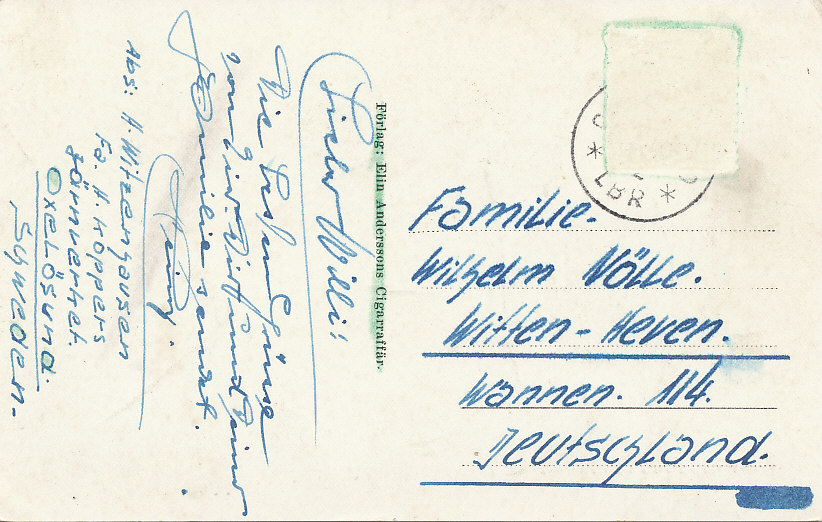 Lieber Willi!
Die besten Grüsse
von hier Dir und Deiner
Familie sendet.
Heinz.
Abs: H. Witzenhausen
Fa. H. Koppers
Järnverket.
Oxelösund.
Sweden.
Förlag: Elin Anderssons Cigarraffär.
LBR
Familie.
Wilhelm Nölle.
Witten-Heven.
Wannen. 114.
Deutschland.